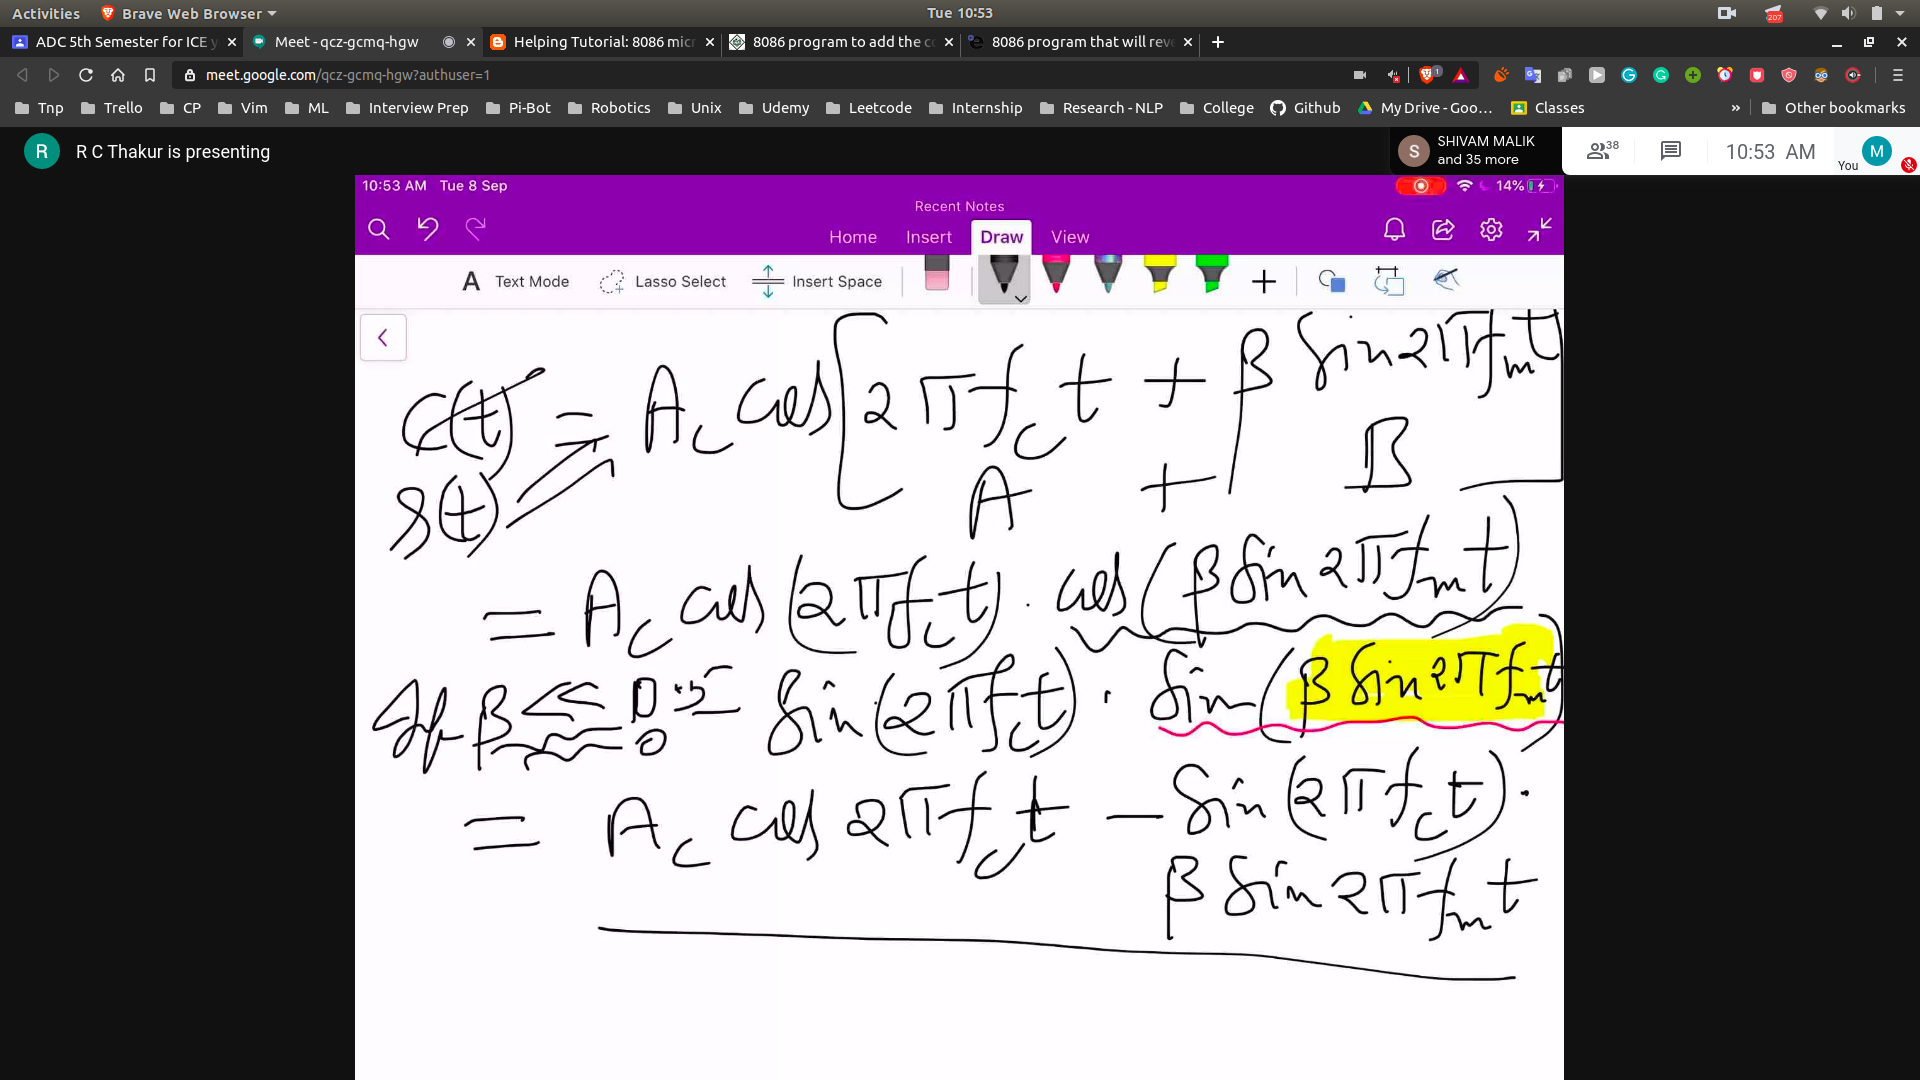 Activities Brave Web Browser Tue 10:53 207
ADC 5th Semester for ICE y Meet - qcz-gcmq-hgw Helping Tutorial: 8086 micr 8086 program to add the co 8086 program that will reve
meet.google.com/qcz-gcmq-hgw?authuser=1 1
Tnp Trello CP Vim ML Interview Prep Pi-Bot Robotics Unix Udemy Leetcode Internship Research - NLP College Github My Drive - Goo... Classes » Other bookmarks
R R C Thakur is presenting
S SHIVAM MALIK
and 35 more
38 10:53 AM You M
10:53 AM Tue 8 Sep 14%
Recent Notes
Home Insert Draw View
A Text Mode Lasso Select Insert Space
c(t) = A_c cos[2πf_c t + β sin 2πf_m t]
s(t) A + B
= A_c cos(2πf_c t) · cos(β sin 2πf_m t)
If β << 0.5 - sin(2πf_c t) · sin(β sin 2πf_m t)
0
= A_c cos 2πf_c t — sin(2πf_c t) ·
β sin 2πf_m t